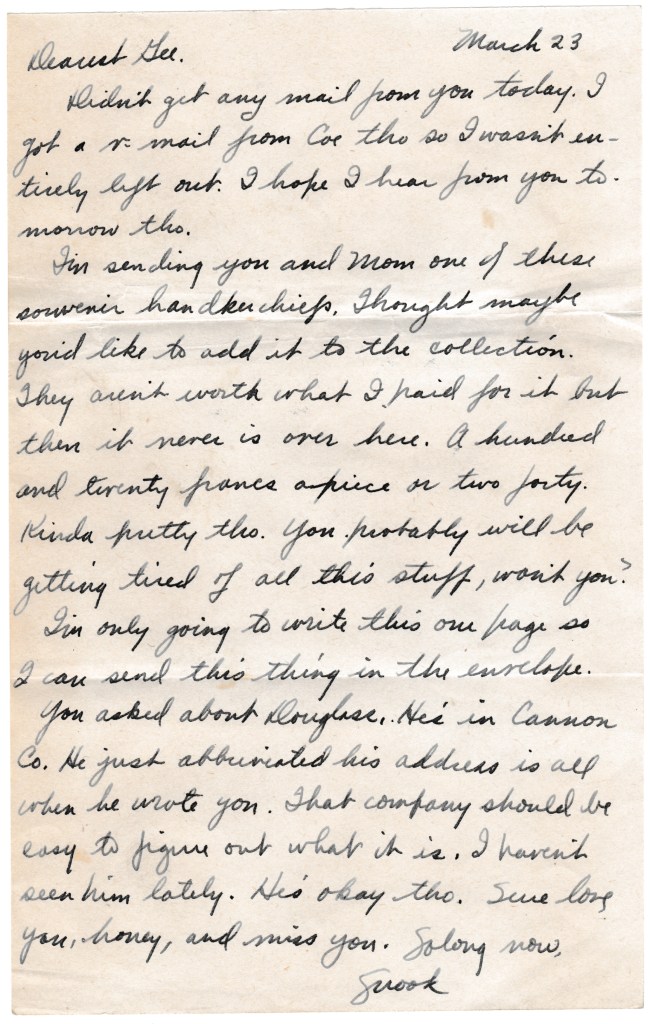 March 23
Dearest Gee.
Didn't get any mail from you today. I
got a v-mail from Coe tho so I wasn't en-
tirely left out. I hope I hear from you to-
morrow tho.
I'm sending you and Mom one of these
souvenir handkerchiefs. Thought maybe
you'd like to add it to the collection.
They aren't worth what I paid for it but
then it never is over here. A hundred
and twenty francs apiece or two forty.
Kinda pretty tho. You probably will be
getting tired of all this stuff, won't you?
I'm only going to write this one page so
I can send this thing in the envelope.
You asked about Douglass. He's in Cannon
Co. He just abbreviated his address is all
when he wrote you. That company should be
easy to figure out what it is. I haven't
seen him lately. He's okay tho. Sure love
you, honey, and miss you. Solong now,
Snook